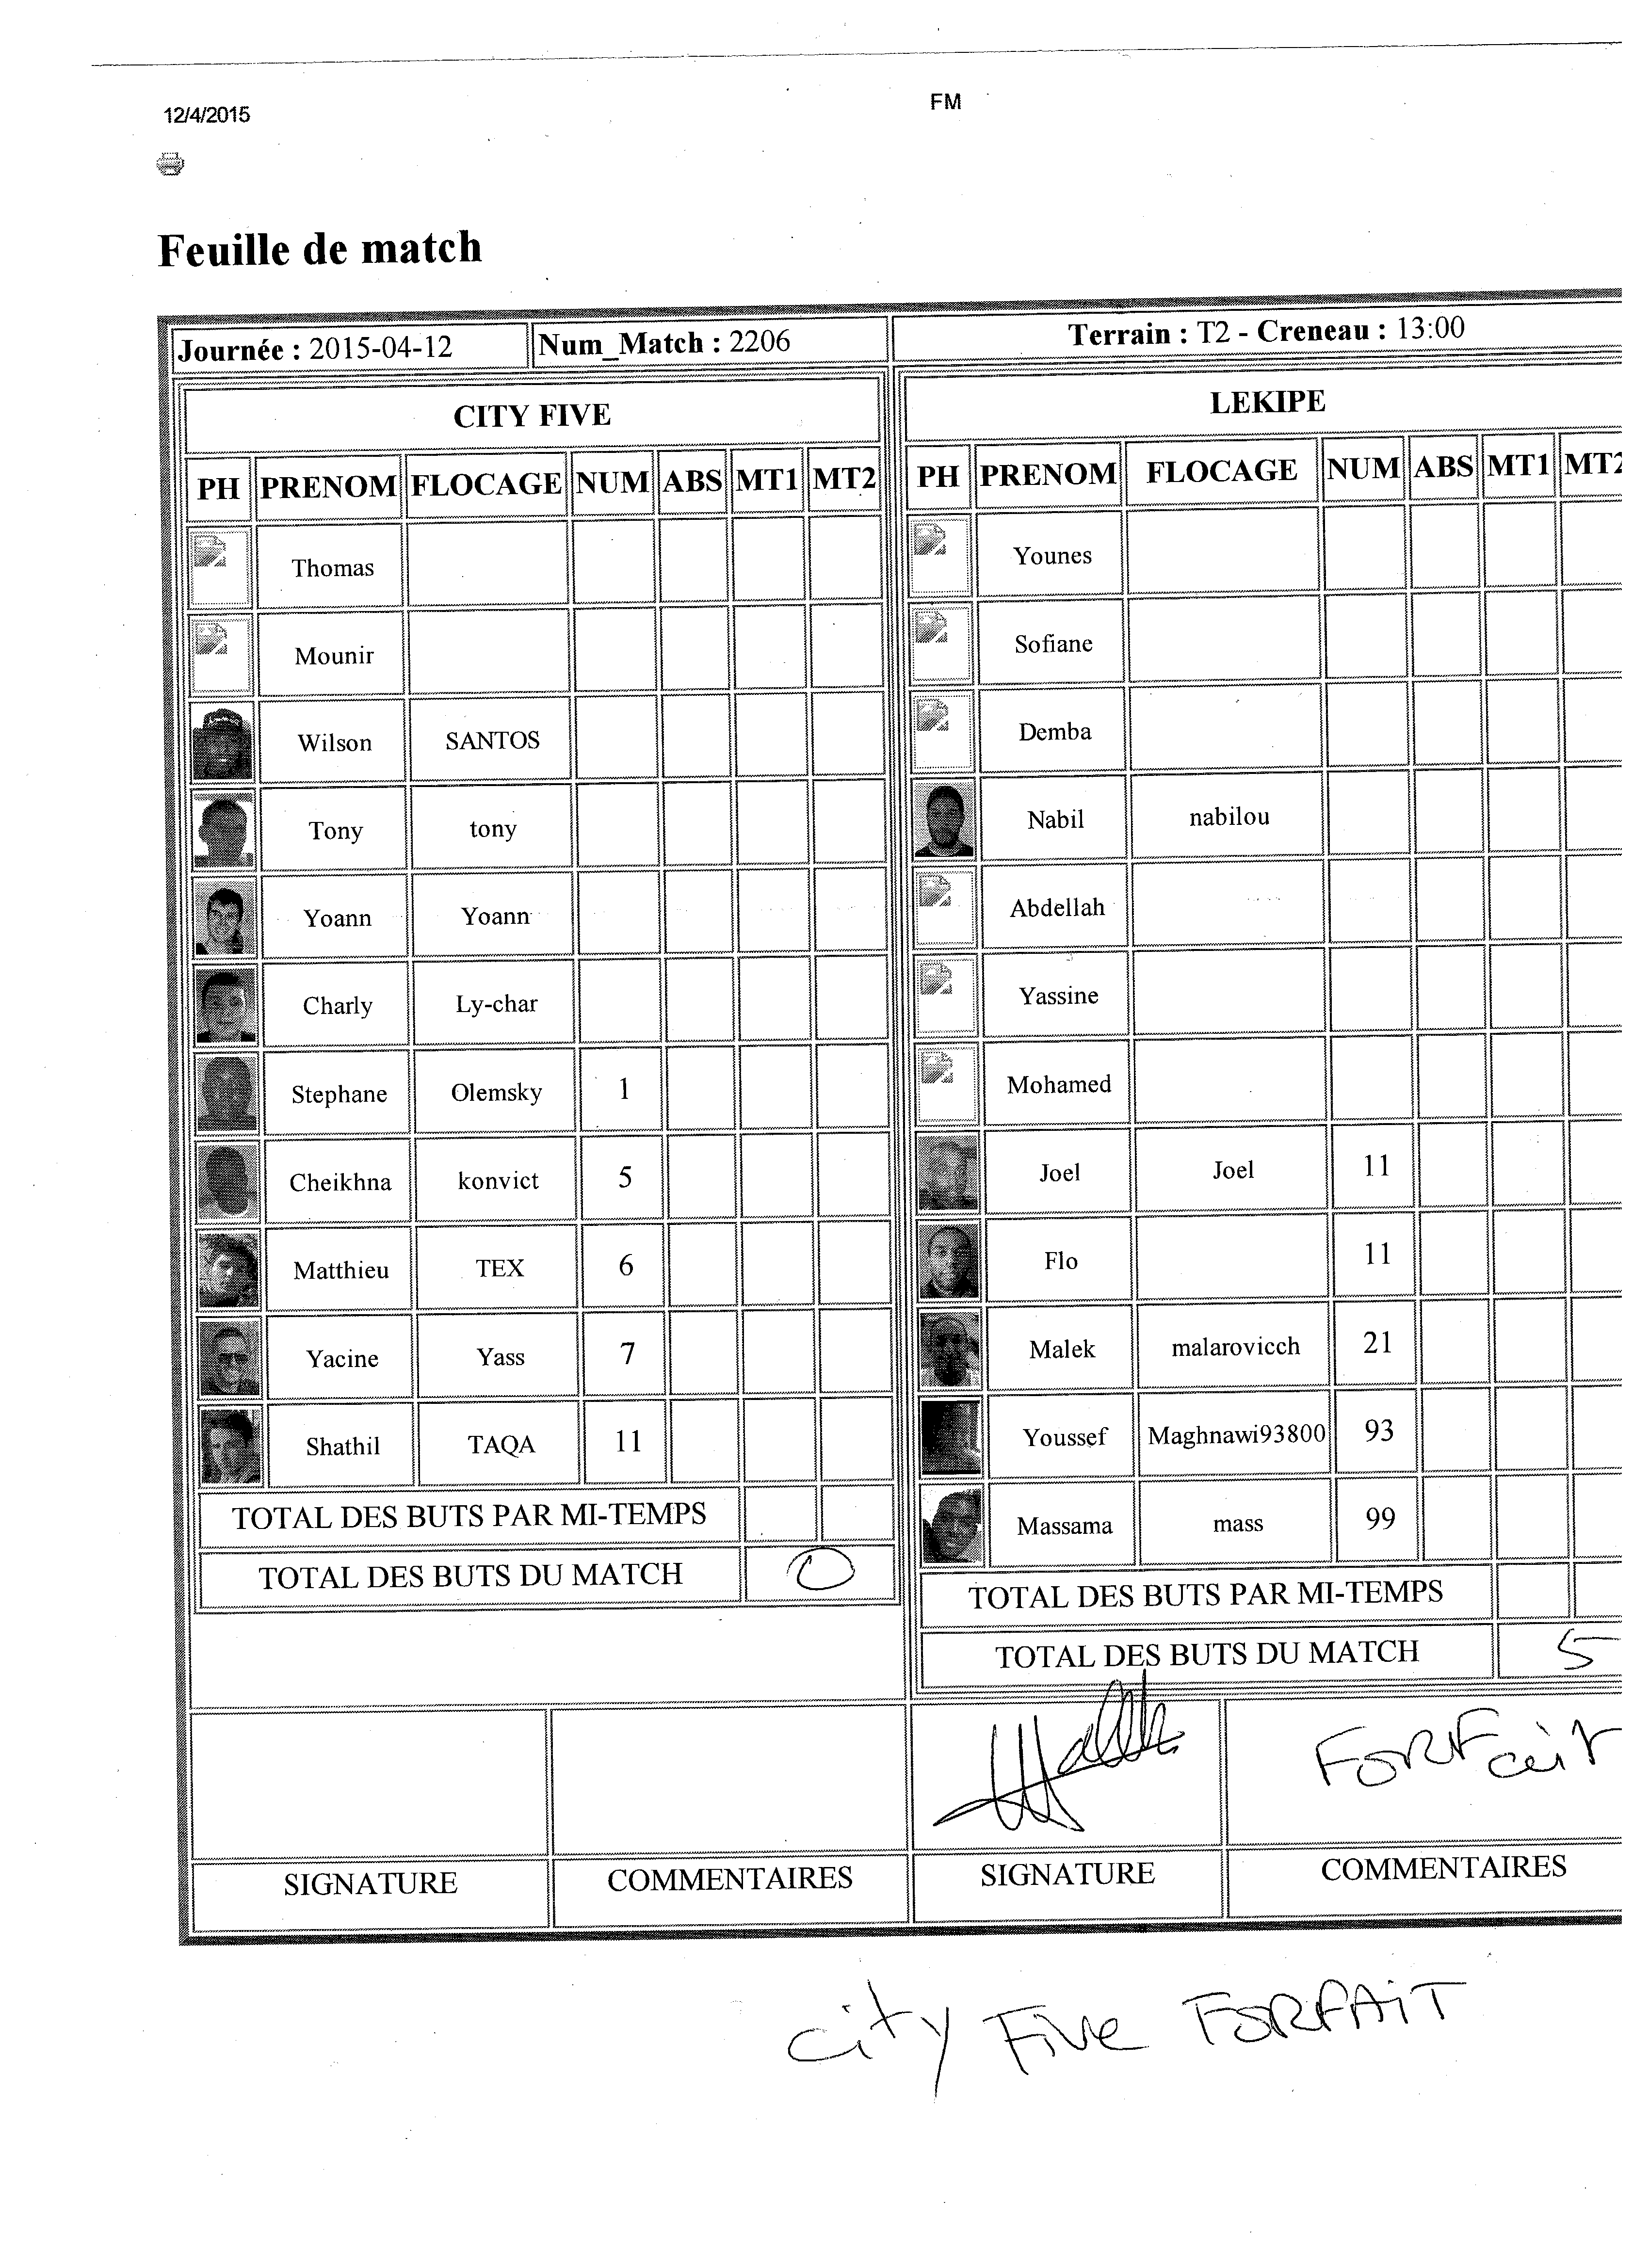 12/4/2015
FM
Feuille de match
Journée : 2015-04-12 Num_Match : 2206 Terrain : T2 - Creneau : 13:00
CITY FIVE
PH PRENOM FLOCAGE NUM ABS MT1 MT2
Thomas
Mounir
Wilson SANTOS
Tony tony
Yoann Yoann
Charly Ly-char
Stephane Olemsky 1
Cheikhna konvict 5
Matthieu TEX 6
Yacine Yass 7
Shathil TAQA 11
TOTAL DES BUTS PAR MI-TEMPS
TOTAL DES BUTS DU MATCH 0
LEKIPE
PH PRENOM FLOCAGE NUM ABS MT1 MT2
Younes
Sofiane
Demba
Nabil nabilou
Abdellah
Yassine
Mohamed
Joel Joel 11
Flo 11
Malek malarovicch 21
Youssef Maghnawi93800 93
Massama mass 99
TOTAL DES BUTS PAR MI-TEMPS
TOTAL DES BUTS DU MATCH 5
FORFait
SIGNATURE COMMENTAIRES SIGNATURE COMMENTAIRES
city Five FORFAiT